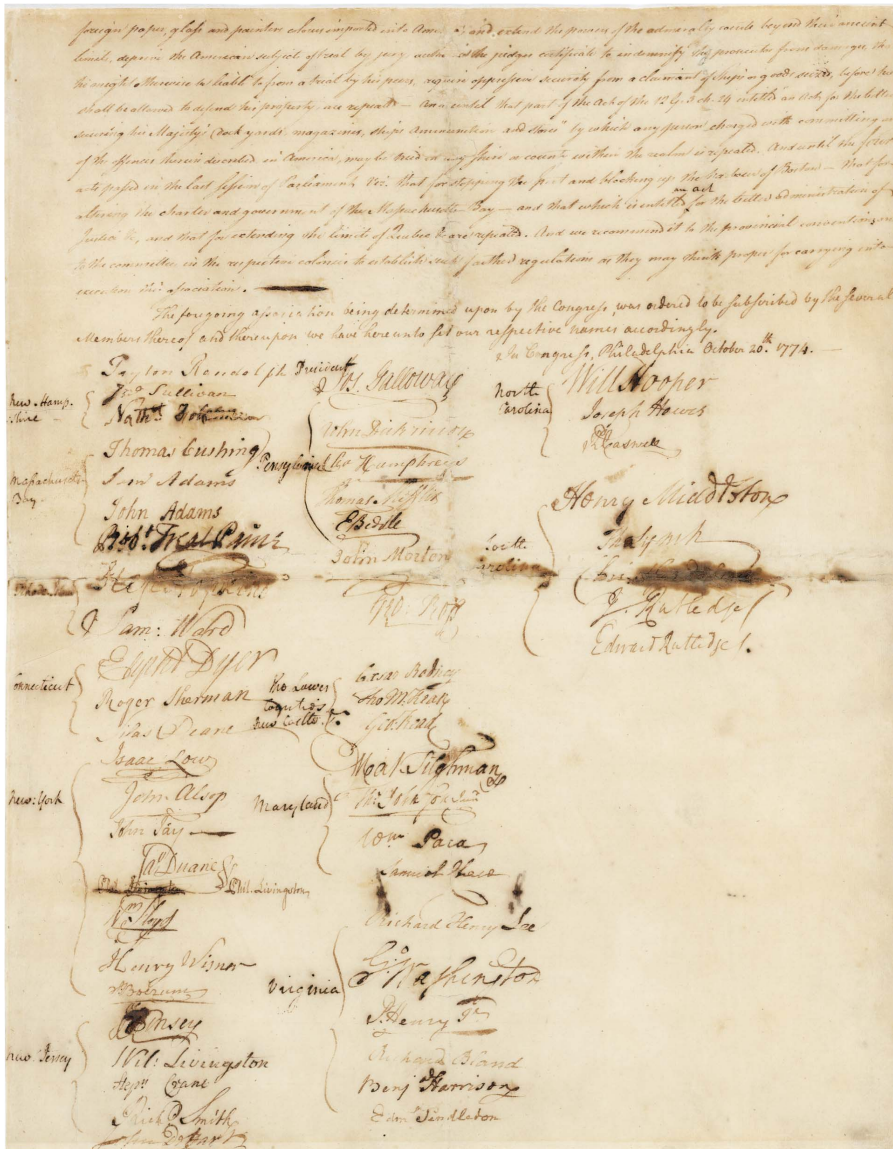 foreign paper, glass and painters colours imported into America and, extend the powers of the admiralty courts beyond their ancient
limits, deprive the American subject of trial by jury, authorize the judges certificate to indemnify the prosecutor from damages, that
he might otherwise be liable to from a trial by his peers, require oppressive security from a claimant of ships or goods seized, before he
shall be allowed to defend his property, are repealed — And until that part of the Act of the 12 G. 3. ch. 24 entitled "an Act for the better
securing his Majesty's Dock yards, magazines, ships Ammunition and stores" by which any person charged with committing any
of the offences therein described in America, may be tried in any shire or county within the realm is repealed. And until the four
acts passed in the last session of Parliament, viz. that for stopping the port and blocking up the harbour of Boston — that for
altering the charter and government of the Massachusetts Bay — and that which is entitled an act for the better administration of
Justice &c, and that for extending the limits of Quebec &c are repealed. And we recommend it to the provincial conventions and
to the committees in the respective colonies to establish such farther regulations as they may think proper for carrying into
execution this association.
The foregoing association being determined upon by the Congress, was ordered to be subscribed by the several
Members thereof and thereupon we have hereunto set our respective names accordingly.
In Congress, Philadelphia October 20.th 1774.
Peyton Randolph President
New Hamp-
shire
Jno Sullivan
Nathl. Folsom
Massachusetts
Bay
Thomas Cushing
Sam Adams
John Adams
Robt. Treat Paine
Rhode Island
Step Hopkins
Sam: Ward
Connecticut
Elipht Dyer
Roger Sherman
Silas Deane
New-York
Isaac Low
John Alsop
John Jay
Jas. Duane
Phil. Livingston
Wm Floyd
Henry Wisner
S: Boerum
New Jersey
J Kinsey
Wil: Livingston
Stepn Crane
Richd Smith
John De Hart
Pensylvania
Jos. Galloway
John Dickinson
Cha Humphreys
Thomas Mifflin
E Biddle
John Morton
Geo: Ross
The Lower
Counties
New Castle &c.
Cæsar Rodney
Tho M:Kean
Geo: Read
Maryland
Mat Tilghman
Th. Johnson Junr
Wm Paca
Samuel Chase
Virginia
Richard Henry Lee
Go Washington
P. Henry Jr
Richard Bland
Benj Harrison
Edmd Pendleton
North
Carolina
Will Hooper
Joseph Hewes
Rd Caswell
South
Carolina
Henry Middleton
Tho Lynch
J. Rutledge
Edward Rutledge